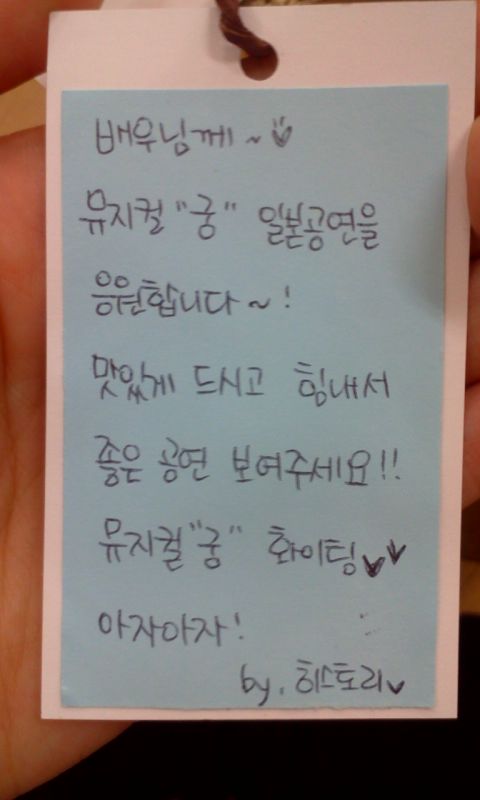 배우님께~♡
뮤지컬 "궁" 일본공연을
응원합니다~!
맛있게 드시고 힘내서
좋은 공연 보여주세요!!
뮤지컬 "궁" 화이팅♥♥
아자아자!
by. 히스토리♥